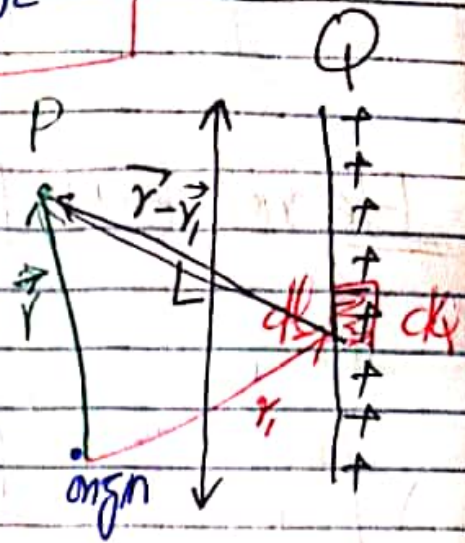 Q
P
r⃗-r⃗₁
L
r⃗
dL
dq
r₁
origin
+
+
+
+
+
+
+
+